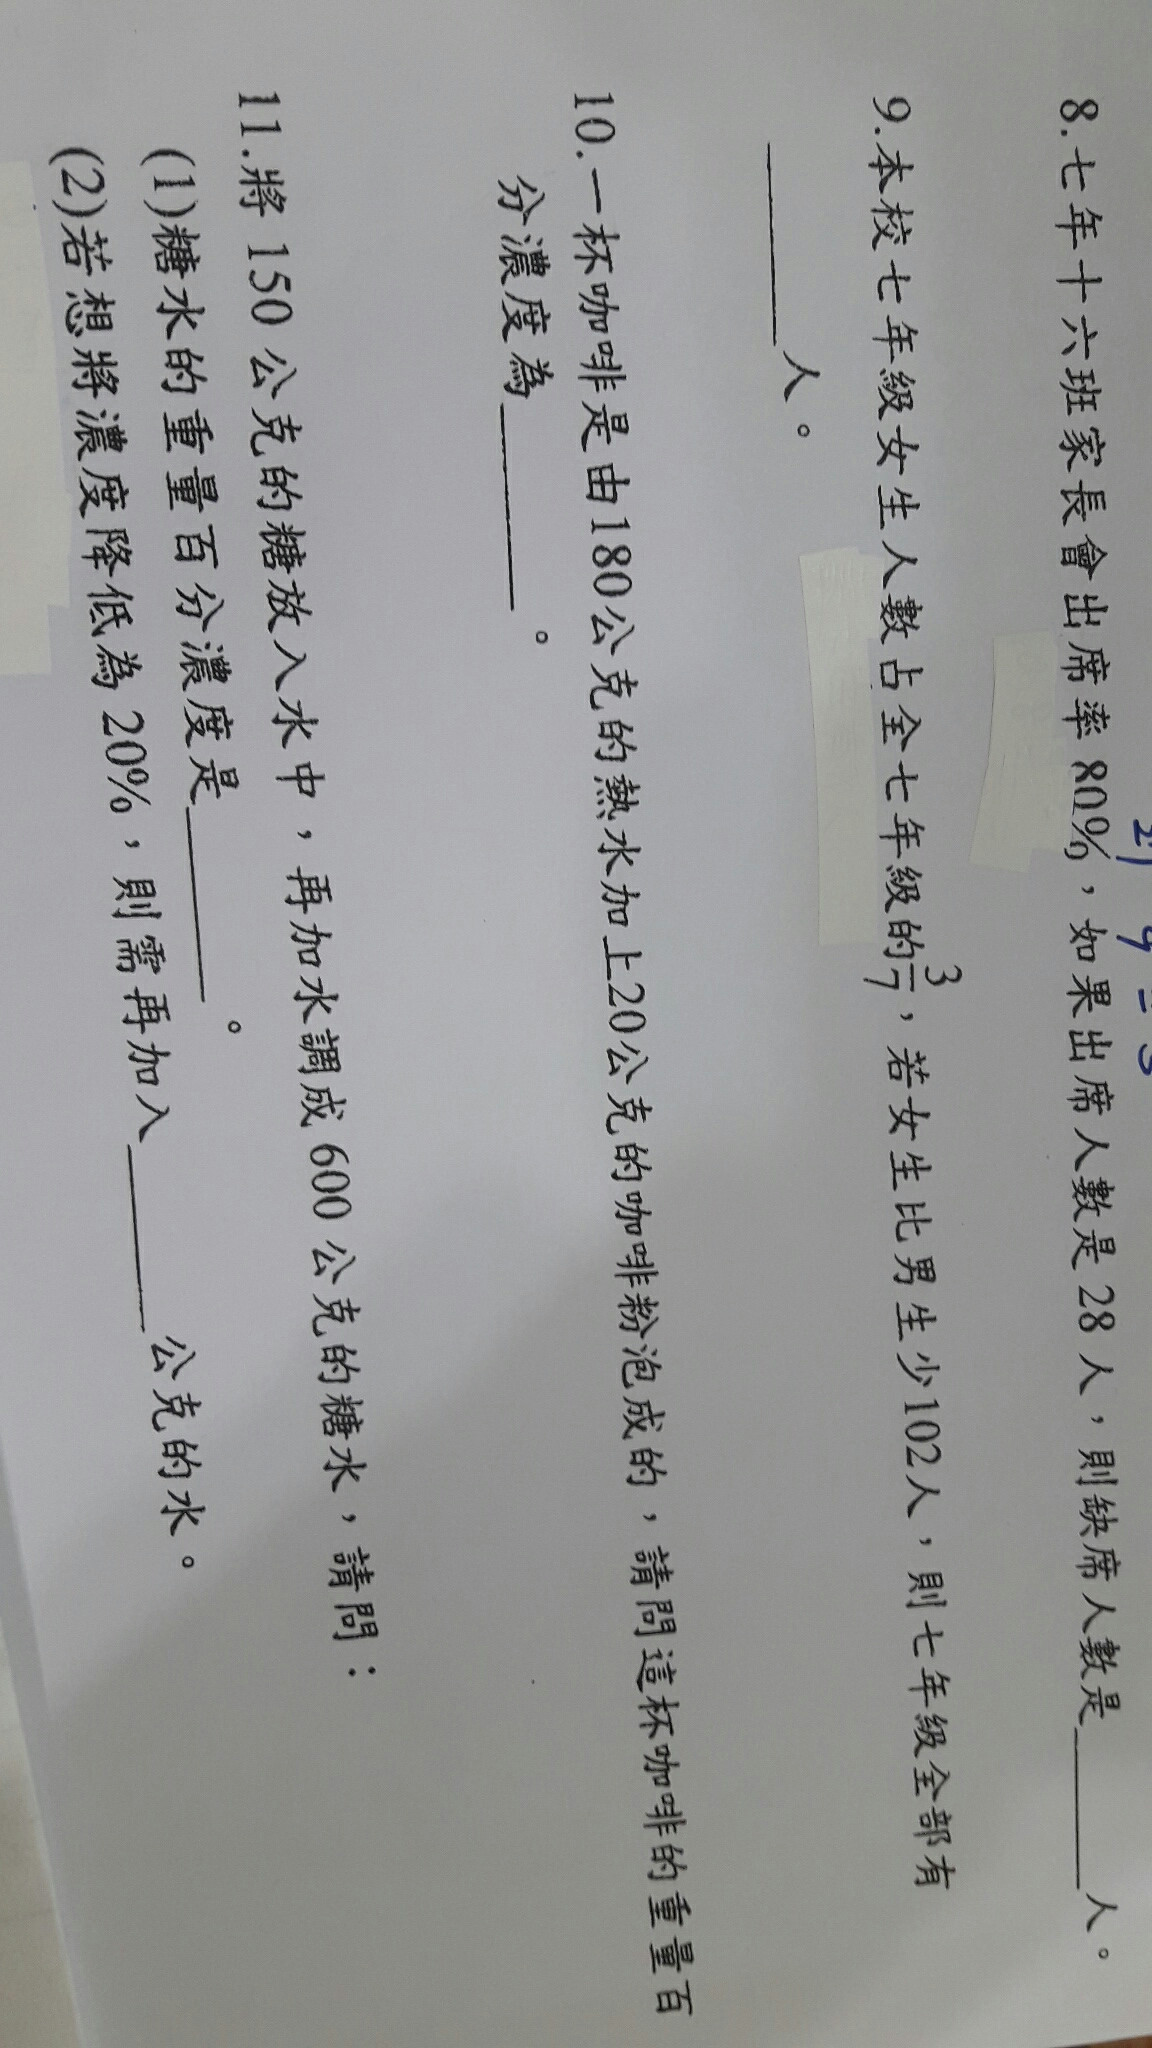 8.七年十六班家長會出席率80%,如果出席人數是28人,則缺席人數是______人。
9.本校七年級女生人數占全七年級的3/7,若女生比男生少102人,則七年級全部有
______人。
10.一杯咖啡是由180公克的熱水加上20公克的咖啡粉泡成的,請問這杯咖啡的重量百
分濃度為______。
11.將150公克的糖放入水中,再加水調成600公克的糖水,請問:
(1)糖水的重量百分濃度是______。
(2)若想將濃度降低為20%,則需再加入______公克的水。